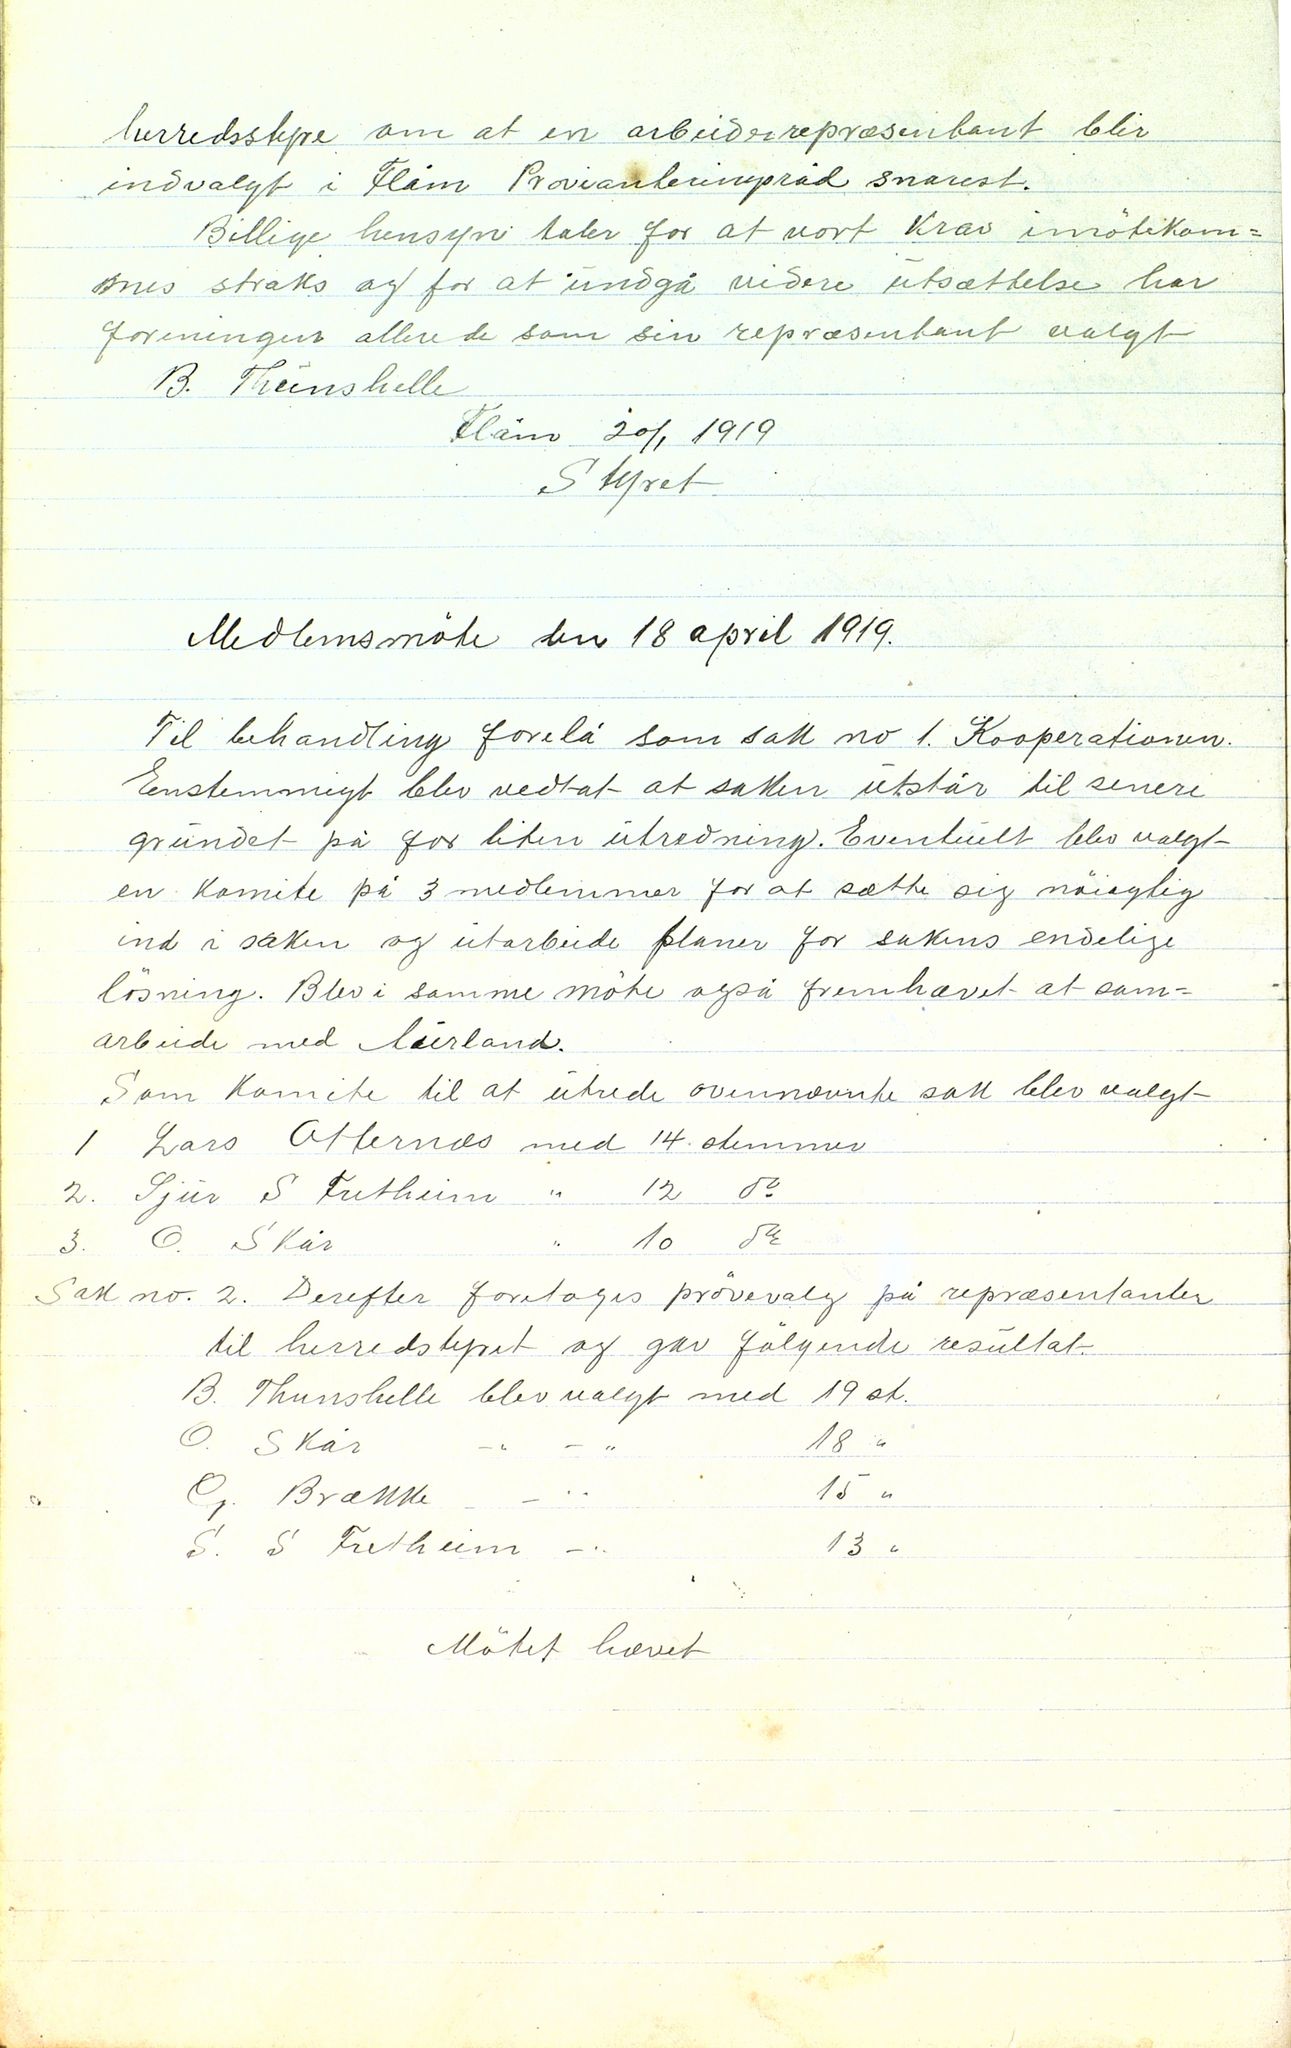 herredsstyre om at en arbeiderrepræsentant blir
indvalgt i Flåm Provianteringsråd snarest.
Billige hensyn taler for at vort krav imötekom=
mes straks og for at undgå videre utsættelse har
foreningen allerede som sin repræsentant valgt
B. Thunshelle
Flåm 20/1 1919
Styret
Medlemsmöte den 18 april 1919.
Til behandling forelå som sak no 1. Kooperationen.
Enstemmigt blev vedtat at saken utstår til senere
grundet på for liten utredning. Eventuelt blev valgt
en komite på 3 medlemmer for at sætte sig nöiagtig
ind i saken og utarbeide planer for sakens endelige
lösning. Blev i samme möte også fremhævet at sam=
arbeide med Aurland.
Som komite til at utrede ovennævnte sak blev valgt
1 Lars Otternæs med 14. stemmer
2. Sjur S Fretheim " 12 do
3. O. Skår " 10 do
Sak no. 2. Derefter foretoges prövevalg på repræsentanter
til herredstyret og gav fölgende resultat.
B. Thunshelle blev valgt med 19 st.
O. Skår -"- -" 18 "
Og. Brække - -" 15 "
S. S Fretheim -" 13 "
Mötet hævet